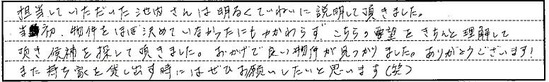 担当していただいた池内さんは明るくていねいに説明して頂きました。
当初、物件をほぼ決めていなかったにもかかわらず こちらの要望をきちんと理解して
頂き候補を探して頂きました。おかげで良い物件が見つかりました。ありがとうございます!
また持ち家を貸し出す時にはぜひお願いしたいと思います(笑)